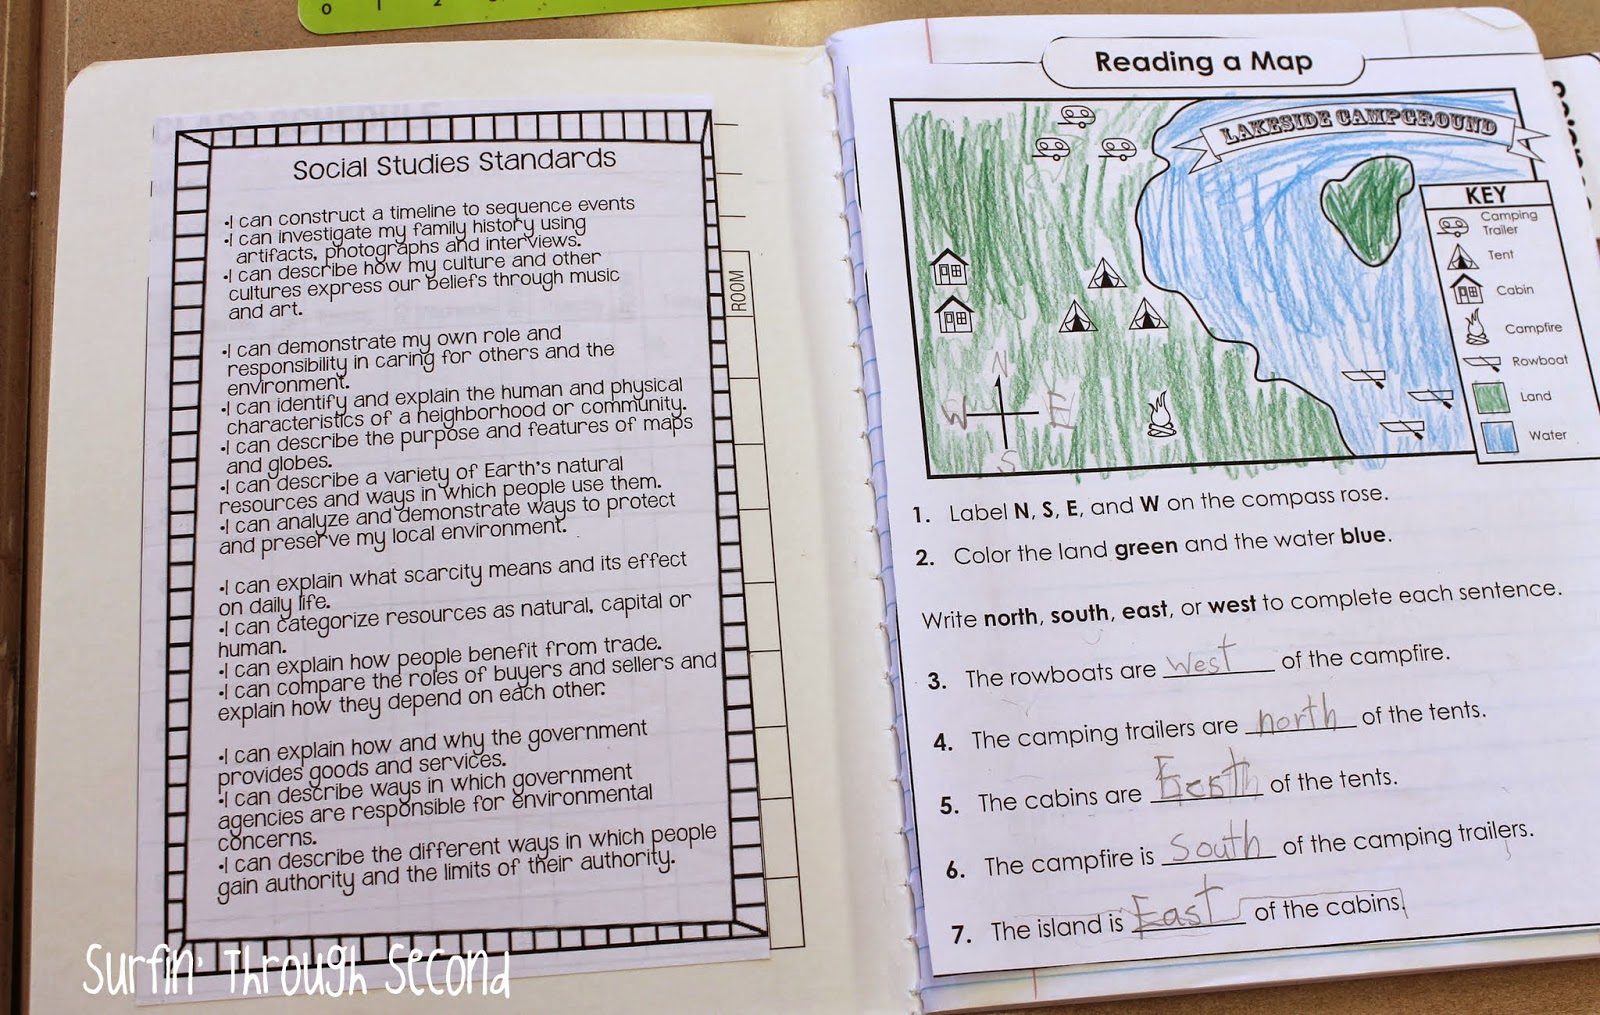 0 1 2
Social Studies Standards
•I can construct a timeline to sequence events
•I can investigate my family history using
artifacts, photographs and interviews.
•I can describe how my culture and other
cultures express our beliefs through music
and art.
•I can demonstrate my own role and
responsibility in caring for others and the
environment.
•I can identify and explain the human and physical
characteristics of a neighborhood or community.
•I can describe the purpose and features of maps
and globes.
•I can describe a variety of Earth's natural
resources and ways in which people use them.
•I can analyze and demonstrate ways to protect
and preserve my local environment.
•I can explain what scarcity means and its effect
on daily life.
•I can categorize resources as natural, capital or
human.
•I can explain how people benefit from trade.
•I can compare the roles of buyers and sellers and
explain how they depend on each other.
•I can explain how and why the government
provides goods and services.
•I can describe ways in which government
agencies are responsible for environmental
concerns.
•I can describe the different ways in which people
gain authority and the limits of their authority.
ROOM
Surfin' Through Second
Reading a Map
LAKESIDE CAMPGROUND
KEY
Camping
Trailer
Tent
Cabin
Campfire
Rowboat
Land
Water
N
W E
S
1. Label N, S, E, and W on the compass rose.
2. Color the land green and the water blue.
Write north, south, east, or west to complete each sentence.
3. The rowboats are west of the campfire.
4. The camping trailers are north of the tents.
5. The cabins are of the tents.
6. The campfire is south of the camping trailers.
7. The island is East of the cabins.